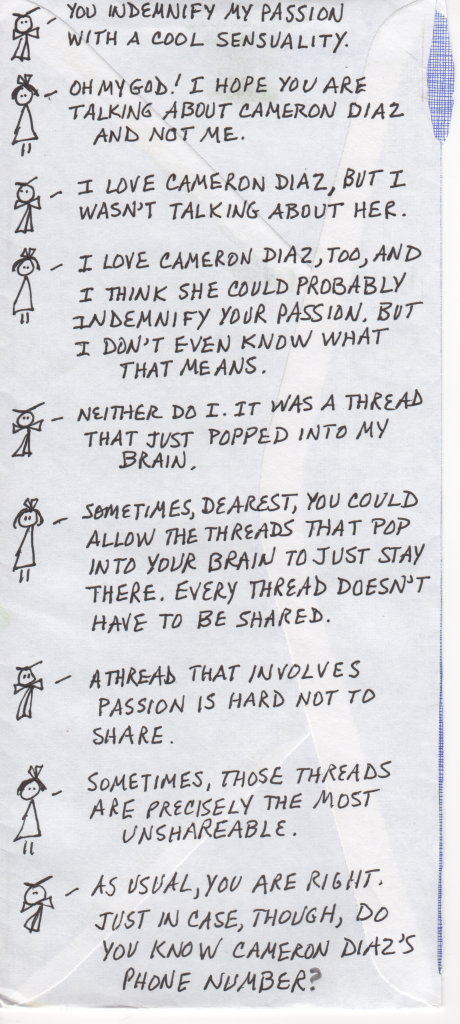 YOU INDEMNIFY MY PASSION
WITH A COOL SENSUALITY.
OH MY GOD! I HOPE YOU ARE
TALKING ABOUT CAMERON DIAZ
AND NOT ME.
I LOVE CAMERON DIAZ, BUT I
WASN'T TALKING ABOUT HER.
I LOVE CAMERON DIAZ, TOO, AND
I THINK SHE COULD PROBABLY
INDEMNIFY YOUR PASSION. BUT
I DON'T EVEN KNOW WHAT
THAT MEANS.
NEITHER DO I. IT WAS A THREAD
THAT JUST POPPED INTO MY
BRAIN.
SOMETIMES, DEAREST, YOU COULD
ALLOW THE THREADS THAT POP
INTO YOUR BRAIN TO JUST STAY
THERE. EVERY THREAD DOESN'T
HAVE TO BE SHARED.
A THREAD THAT INVOLVES
PASSION IS HARD NOT TO
SHARE.
SOMETIMES, THOSE THREADS
ARE PRECISELY THE MOST
UNSHAREABLE.
AS USUAL, YOU ARE RIGHT.
JUST IN CASE, THOUGH, DO
YOU KNOW CAMERON DIAZ'S
PHONE NUMBER?